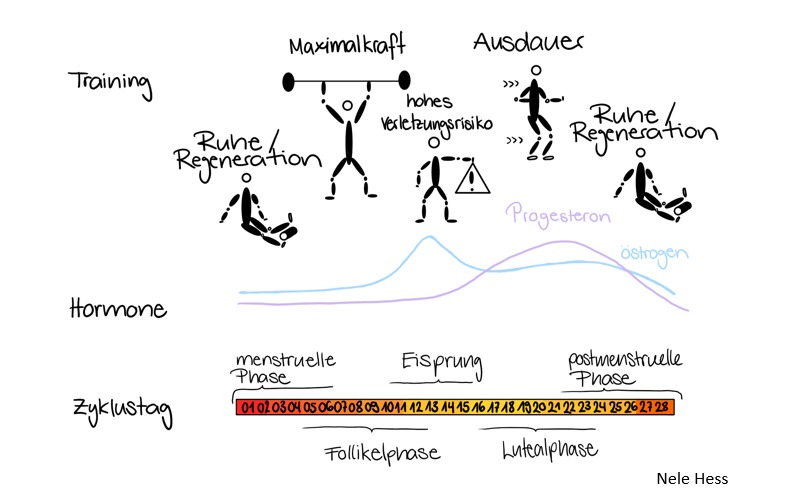 Maximalkraft
Ausdauer
Training
hohes
Verletzungsrisiko
Ruhe/
Regeneration
Ruhe/
Regeneration
!
>>>
>>>
Progesteron
östrogen
Hormone
menstruelle
Phase
Eisprung
postmenstruelle
Phase
Zyklustag
01 02 03 04 05 06 07 08 09 10 11 12 13 14 15 16 17 18 19 20 21 22 23 24 25 26 27 28
Follikelphase
Lutealphase
Nele Hess